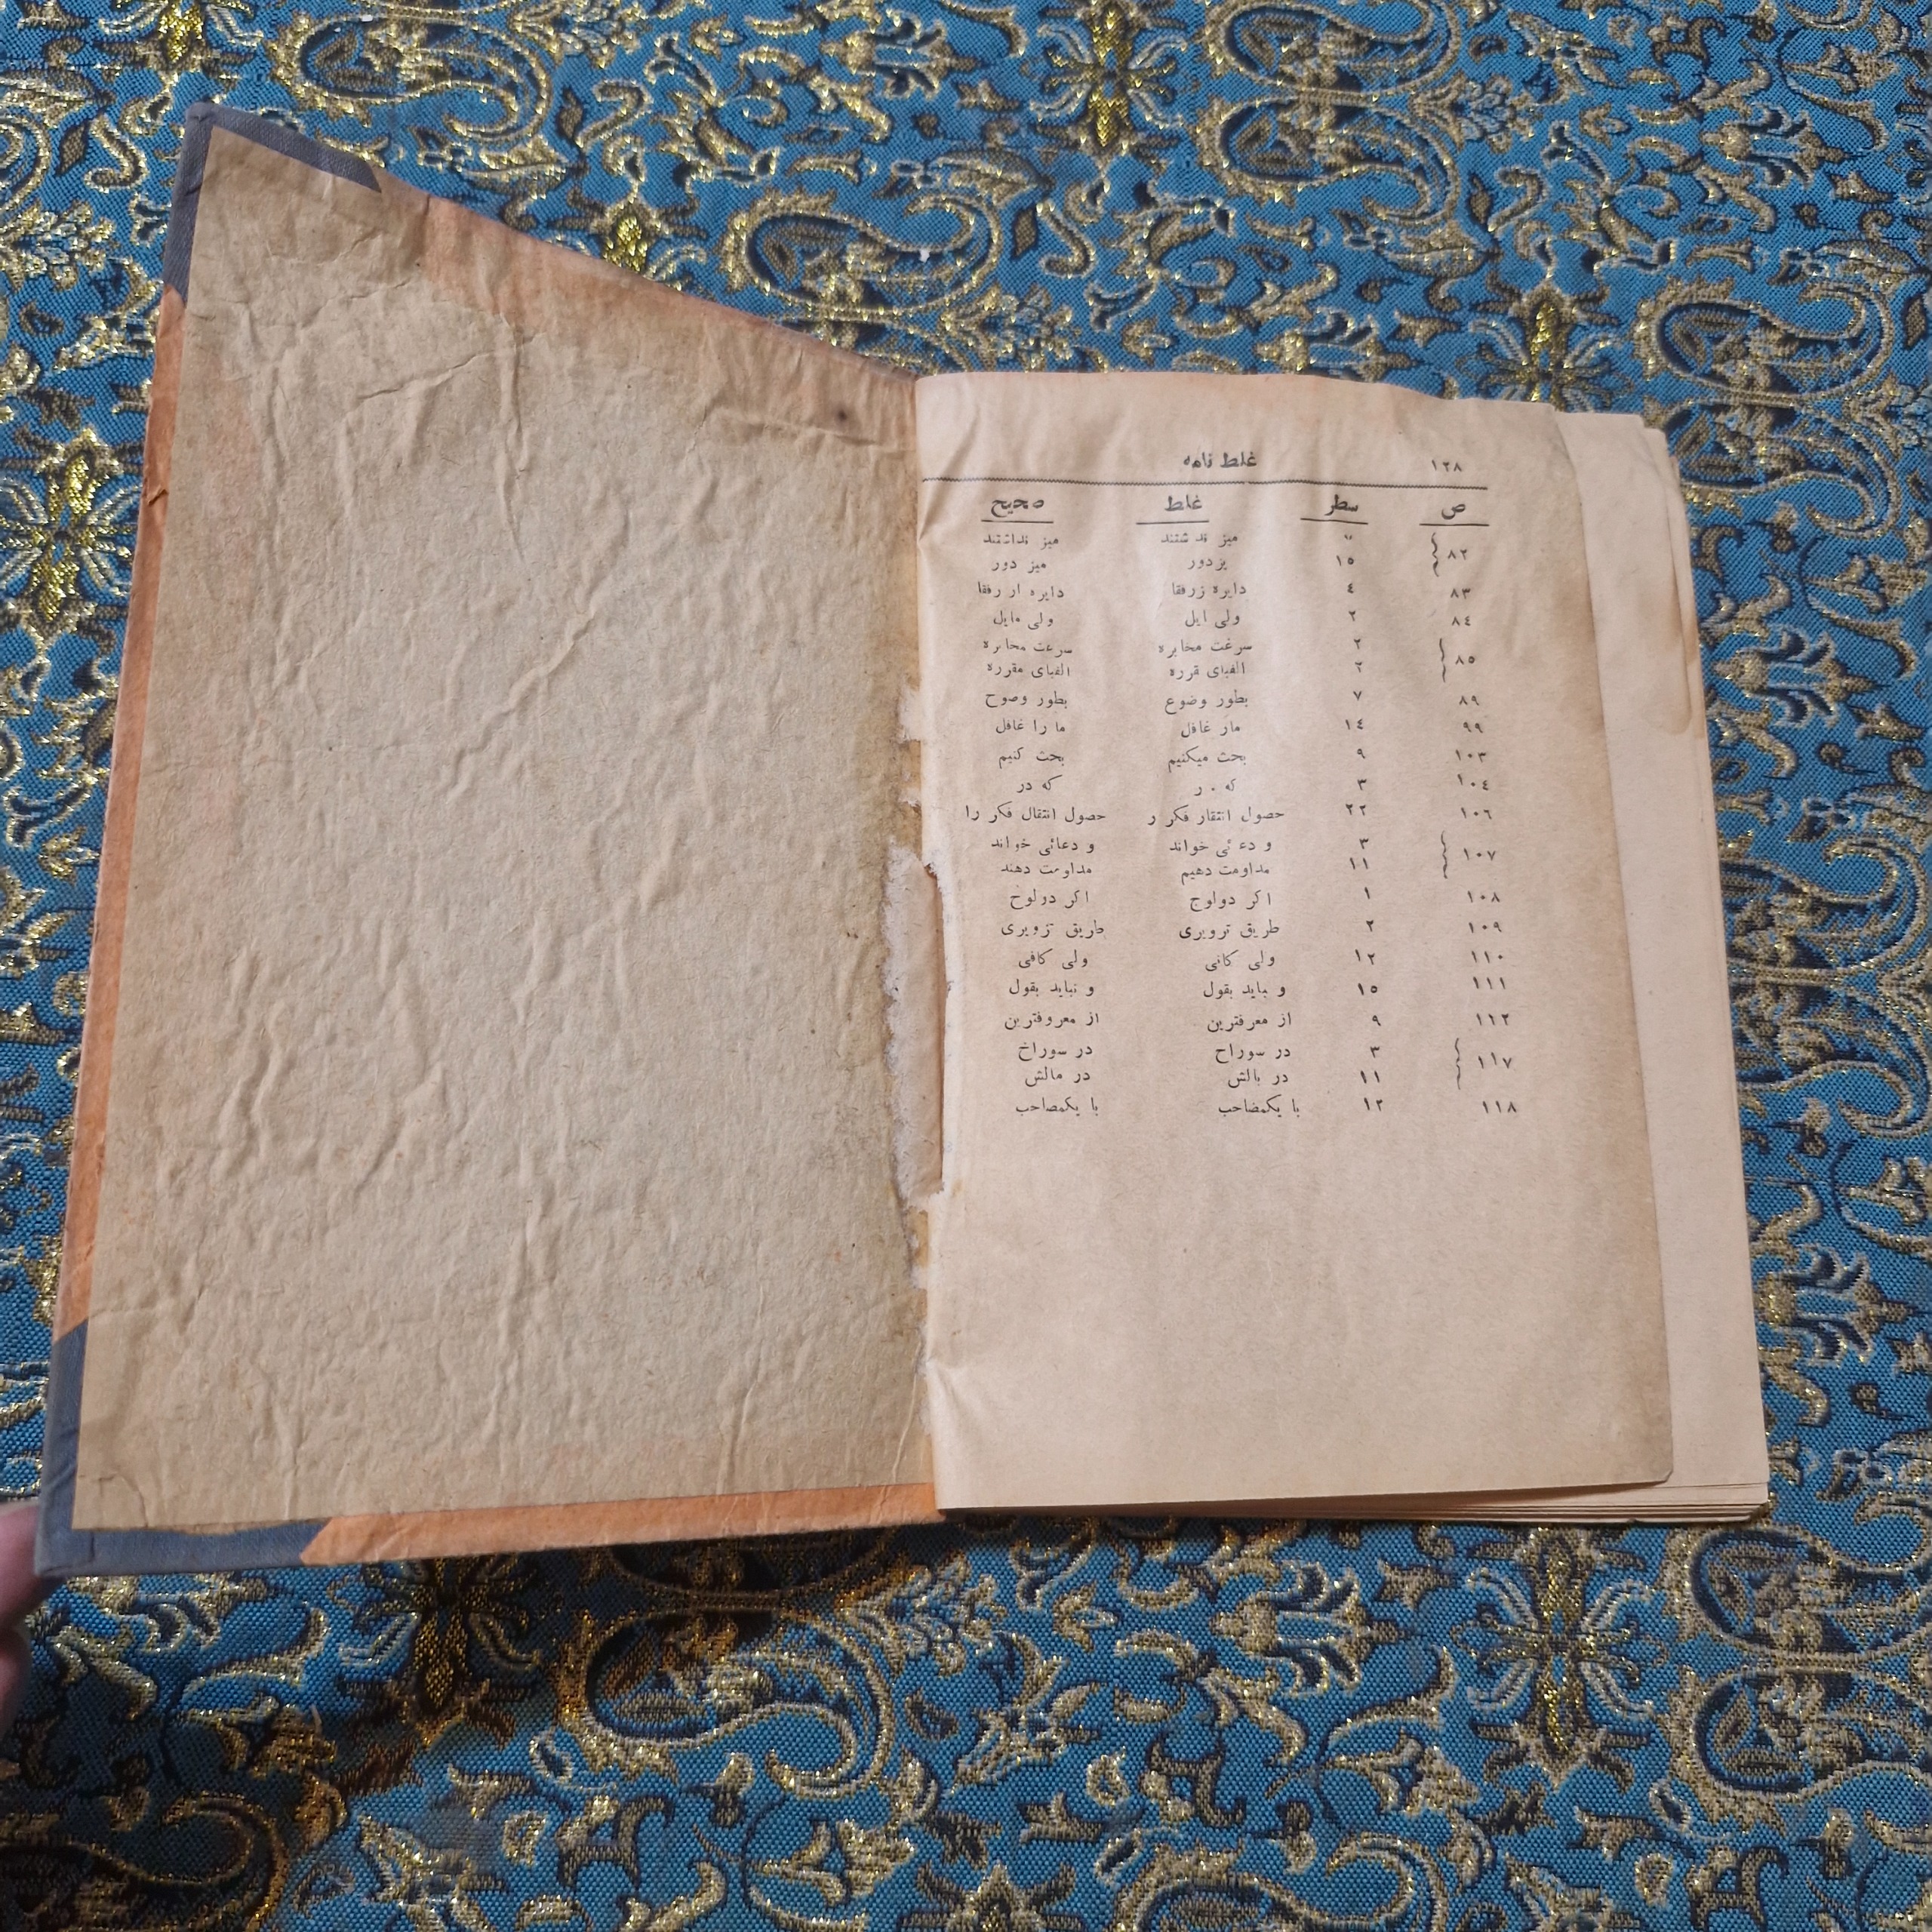 ۱۲۸ غلط نامه
ص سطر غلط صحیح
۸۲ میز ند شتند میز نداشتند
۱۵ یزدور میز دور
۸۳ ٤ دایره زرفقا دایره از رفقا
۸٤ ۲ ولی ایل ولی مایل
۸۵ ۲ سرغت مخابره سرعت مخابره
۲ الفبای قرره الفبای مقرره
۸۹ ۷ بطور وضوع بطور وضوح
۹۹ ۱٤ مار غافل ما را غافل
۱۰۳ ۹ بحث میکنیم بحث کنیم
۱۰٤ ۳ که ۰ ر که در
۱۰٦ ۲۲ حصول انتقار فکر ر حصول انتقال فکر را
۱۰۷ ۳ و دعئی خواند و دعائی خواند
۱۱ مداومت دهیم مداومت دهند
۱۰۸ ۱ اکر دولوج اکر درلوح
۱۰۹ ۲ طریق ترویری طریق تزویری
۱۱۰ ۱۲ ولی کانی ولی کافی
۱۱۱ ۱۵ و باید بقول و نباید بقول
۱۱۲ ۹ از معرفترین از معروفترین
۱۱۷ ۳ در سوراح در سوراخ
۱۱ در بالش در مالش
۱۱۸ ۱۲ با یکمضاحب با یکمصاحب